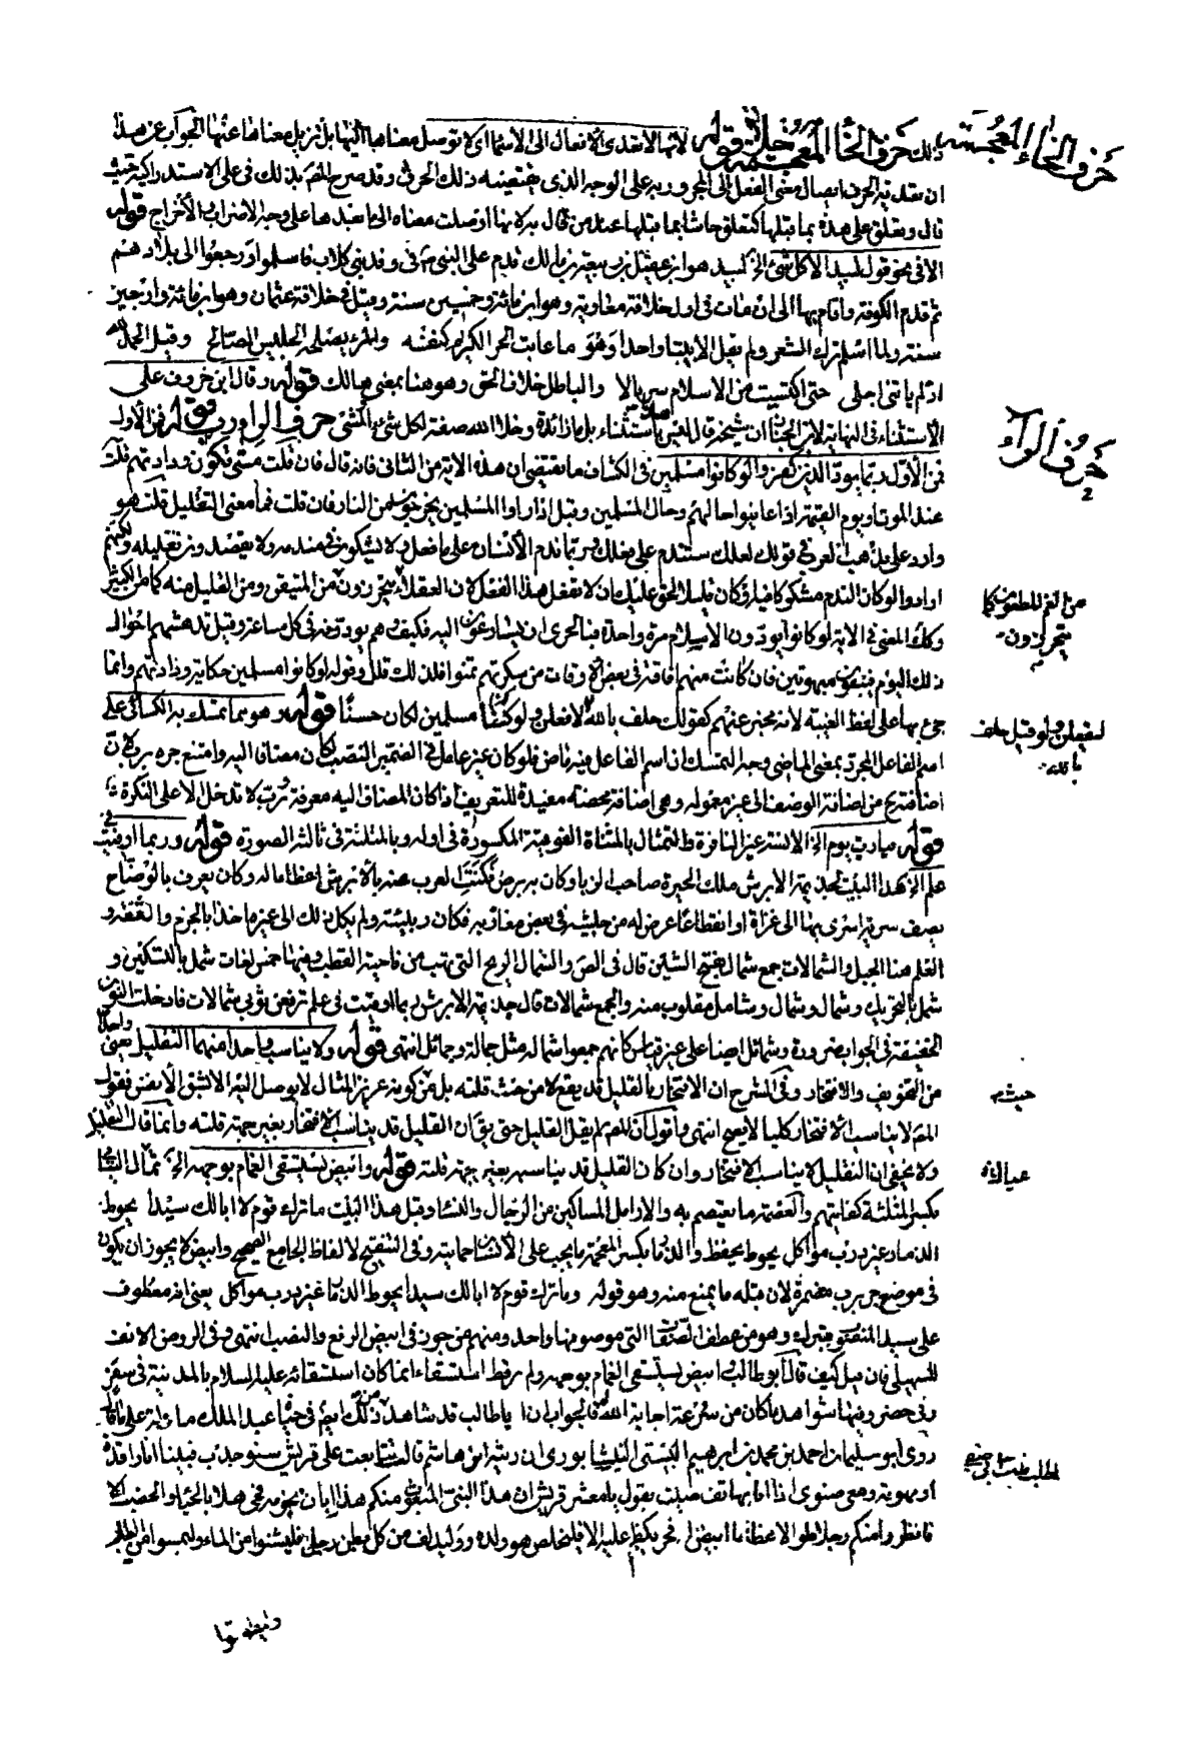 حرف الخاء المعجمة
ذلك حرف الخاء المعجمة خلا قوله لانها لا تعدى الافعال الى الاسماء اى لا توصل معناها اليها بل تزيل معناها عنها الجواب عن هذا
ان تعدية الحرف ايصال معنى الفعل الى المجرور به على الوجه الذى يقتضيه ذلك الحرف وقد صرح المص بذلك فى على الاستدراكية حيث
قال وتعلق على هذه بما قبلها كتعلق حاشا بما قبلها عند من قال به لانها اوصلت معناه الى ما بعدها على وجه الاضراب والاخراج قوله
الا فى نحو قول لبيد الا كل شئ الخ لبيد هو ابن عقيل بن ربيعة بن مالك قدم على النبى فى وفد بنى كلاب فاسلموا ورجعوا الى بلادهم
ثم قدم الكوفة واقام بها الى ان مات فى اول خلافة معاوية وهو ابن مائة وخمسين سنة وقيل فى خلافة عثمان وهو ابن مائة واربعين
سنة ولما اسلم ترك الشعر ولم يقل الا بيتا واحدا وهو ما عاتب الحر الكريم كنفسه والمرء يصلحه الجليس الصالح وقيل الحمد لله
اذ لم ياتنى اجلى حتى اكتسيت من الاسلام سربالا والباطل خلاف الحق وهو هنا بمعنى هالك قوله وقال ابن خروف على
الاستثناء فى النهاية لابن الخباز ان شيخه قال ليس باستثناء بل ما زائدة وخلا الله صفة لكل شئ المشى حرف الراء رب قوله فمن الاول
حرف الراء
فمن الاول ربما يود الذين كفروا لو كانوا مسلمين فى الكشاف ما يقتضى ان هذه الاية من الثانى فانه قال فان قلت متى تكون ودادتهم قلت
عند الموت او يوم القيمة اذا عاينوا حالهم وحال المسلمين وقيل اذا راوا المسلمين يخرجون من النار فان قلت فما معنى التقليل قلت هو
وارد على مذهب العرب فى قولك لعلك ستندم على فعلك وربما ندم الانسان على ما فعل ولا يشكون فى تندمه ولا يقصدون تقليله ولكنهم
ارادوا لو كان الندم مشكوكا فيه او كان قليلا لحق عليك ان لا تفعل هذا الفعل لان العقلاء يتحرزون من المتيقن ومن القليل منه كما من الكثير
من الغم المظنون كما
يتحرزون
وكذا المعنى فى الاية لو كانوا يودون الاسلام مرة واحدة فبالحرى ان يسارعوا اليه فكيف هم يودونه فى كل ساعة وقيل تدهشهم احوال
ذلك اليوم فيبقون مبهوتين فان كانت منهم افاقة فى بعض الاوقات من سكرتهم تمنوا فلذلك قلل وقوله لو كانوا مسلمين حكاية ودادتهم وانما
جئ بها على لفظ الغيبة لانه مخبر عنهم كقولك حلف بالله لافعلن ولو كنا مسلمين لكان حسنا قوله وهو مما تمسك به الكسائى على
ليفعلن ولو قيل حلف
بالله
اسم الفاعل المجرد بمعنى الماضى وجه التمسك ان اسم الفاعل فيه ماض فلو كان غير عامل فى الضمير النصب لكان مضافا اليه وامتنع جره برب لان
اضافته من اضافة الوصف الى غير معموله وهى اضافة محضة مفيدة للتعريف اذا كان المضاف اليه معرفة ورب لا تدخل الا على النكرة
قوله فيا رب يوم الخ الانسة غير النافرة والتمثال بالمثناة الفوقية المكسورة فى اوله وبالمثلثة فى ثالثه الصورة قوله وربما اوفيت فى
علم الخ هذا البيت لجذيمة الابرش ملك الحيرة صاحب الزبا وكان به برص فكنت العرب عنه بالابرش اعظاما له وكان يعرف بالوضاح
يصف سرية اسرى بها الى غزاة او انقطاعا عرض له من جيشه فى بعض مغازيه فكان ربيئته ولم يكل ذلك الى غيره اخذا بالحزم والثقة و
العلم هنا الجبل والشمالات جمع شمال بفتح الشين قال فى الص والشمال الريح التى تهب من ناحية القطب وفيها خمس لغات شمل بالتسكين و
شمل بالتحريك وشمال وشمأل وشامل مقلوب منه والجمع شمالات قال جذيمة الابرش ربما اوفيت فى علم ترفعن ثوبى شمالات فادخلت النون
الخفيفة فى الجواب ضرورة وشمائل ايضا على غير قياس كانهم جمعوا شمالة مثل حمالة وحمائل انتهى قوله ولا يناسب واحدا منهما التقليل يعنى واحدا
من التخويف والافتخار وفى الشرح ان الافتخار بالقليل قد يقع لا من حيث قلته بل من كونه عزيز المثال لا يوصل اليه الا بشق الانفس فقول
حيث
المص لا يناسب الافتخار كليا لا يصح انتهى واقول ان المص لم يقل القليل حتى يق ان القليل قد يناسب الافتخار بغير جهة قلته وانما قال التقليل
ولا يخفى ان التقليل لا يناسب الافتخار وان كان القليل قد يناسبه بغير جهة قلته قوله وابيض يستسقى الغمام بوجهه الخ ثمال اليتامى
بكسر المثلثة كفايتهم والعصمة ما يعتصم به والارامل المساكين من الرجال والنساء وقبل هذا البيت ما ترك قوم لا ابالك سيدا يحوط
الذمار غير ذرب مواكل يحوط يحفظ والذمار بكسر المعجمة ما يجب على الانسان حمايته وفى التنقيح لالفاظ الجامع الصحيح وابيض لا يجوز ان يكون
فى موضع جر برب مضمرة لان قبله ما يمنع منه وهو قوله وما ترك قوم لا ابالك سيدا يحوط الذمار غير ذرب مواكل يعنى انه معطوف
على سيد المنصوب بترك وهو من عطف الصفات التى موصوفها واحد ومنهم من جوز فى ابيض الرفع والنصب انتهى وفى الروض الانف
للسهيلى فان قيل كيف قال ابو طالب وابيض يستسقى الغمام بوجهه ولم ير قط استسقاء انما كان استسقائه عليه السلام بالمدينة فى سفر
وفى حضر وفيها شوهد ما كان من سرعة اجابة الله له فالجواب ان ابا طالب قد شاهد من ذلك ايضا فى حياة عبد المطلب ما دله على ما قال
روى ابو سليمان احمد بن محمد بن ابراهيم البستى النيسابورى ان رقيقة ابن هاشم قالت تتابعت على قريش سنو جدب فبينا انا راقدة
او مهومة ومعى صنوى اذا انا بهاتف صيت يقول يا معشر قريش ان هذا النبى المبعوث منكم هذا ابان نجومه فحى هلا بالحيا والخصب الا
فانظروا منكم رجلا طوالا عظاما ابيض له فخر يكظم عليه الا فليخلص هو وولده وليدلف من كل بطن رجل فليشنوا من الماء وليمسوا من الطيب